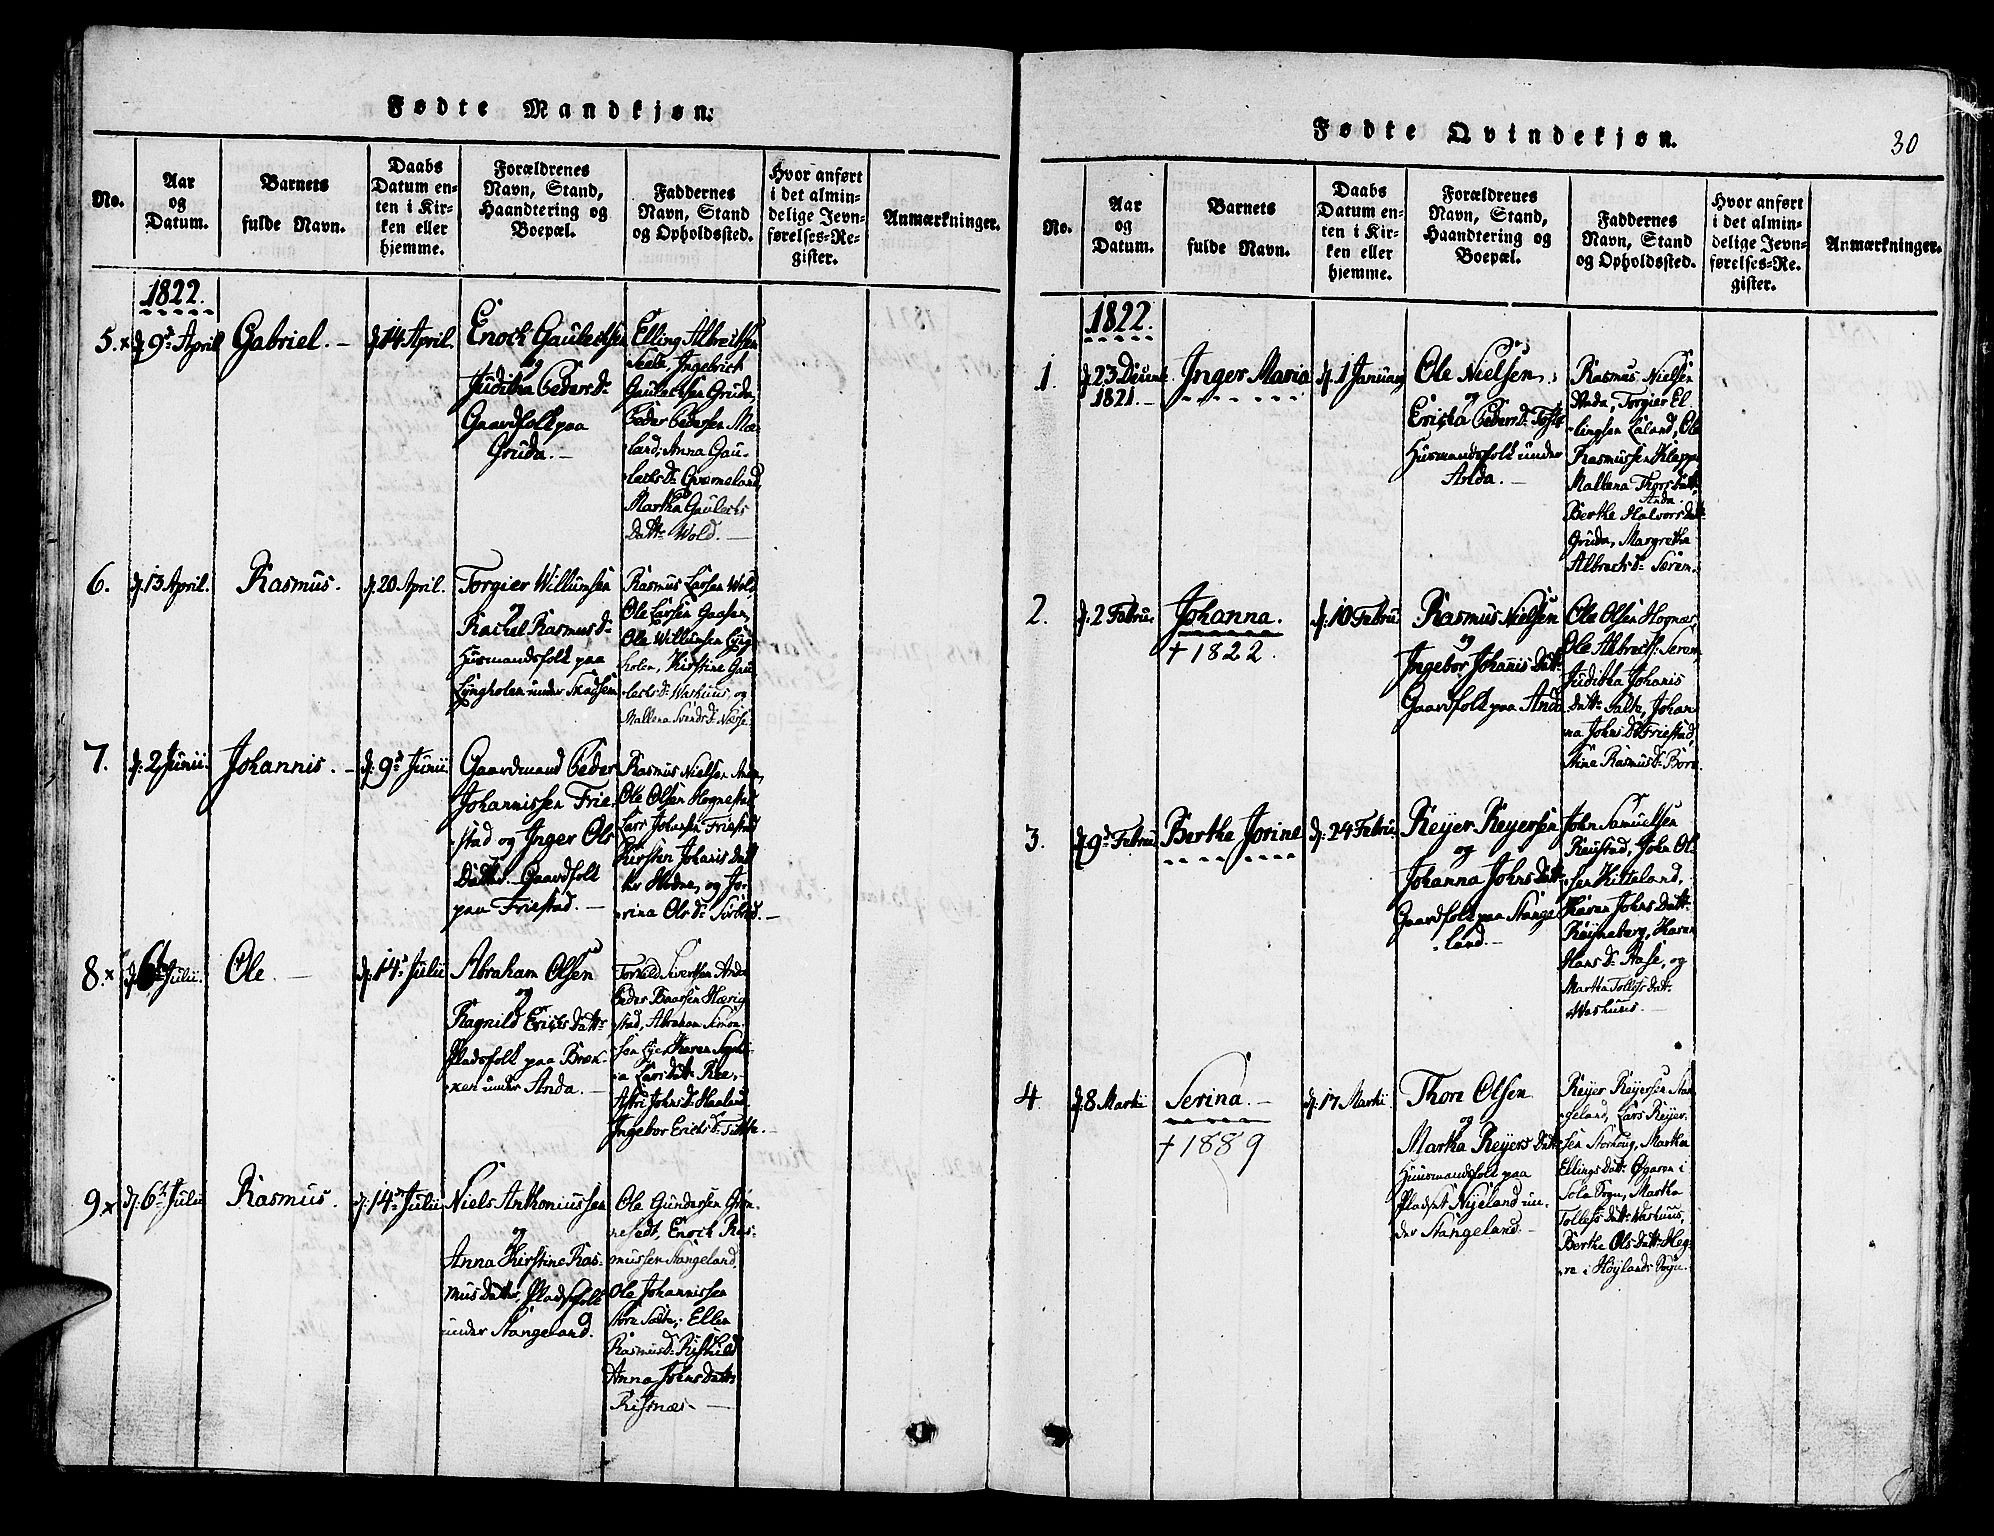 Fødte Mandkjøn.
No.
Aar
og
Datum.
Barnets
fulde Navn.
Daabs
Datum en-
ten i Kir-
ken eller
hjemme.
Forældrenes
Navn, Stand,
Haandtering og
Boepæl.
Faddernes
Navn, Stand
og Opholdssted.
Hvor anført
i det almin-
delige Jevn-
førelses-Re-
gister.
Anmærkninger.
1822.
5. ×
d. 9d April
Gabriel. -
d. 14 April.
Enoch Gaulechsen
og
Juditha Peders D.
Gaardfolk paa
Gruda. -
Elling Albrechtsen
Seele, Ingebrict
Gaulechsen Gruda,
Peder Pedersen Mæ-
land, Anna Gau-
lechs D. Qværneland,
Martha Gaulechs
Datt: Wold. -
6.
d. 13 April.
Rasmus.
d. 20 April.
Torgier Willumsen
og
Rachel Rasmus D.
Huusmandsfolk paa
Lyngholen under Skadsem
Rasmus Larsen Wold,
Ole Larsen Gaasen,
Ole Willumsen Lyng-
holen, Kirstine Gau-
lechs D. Washuus, og
Mallena Svends D. Nærse
7.
d: 2 Junii.
Johannis. -
d: 9d Junii.
Gaardmand Peder
Johannissen Frie-
stad og Inger Ols
Datter. Gaardfolk
paa Friestad. -
Rasmus Nielsen Anda,
Ole Olsen Hognestad
Lars Johansen Friestad
Kirsten Johanis Datt
ter Hodne, og Jo-
rina Ols D: Sørbrød. -
8. ×
d. 6te Julii.
Ole. -
d: 14d Julii
Abraham Olsen
og
Ragnild Erichs Datt:
Pladsfolk paa Bræk-
ken under Anda. -
Torkild Sivertsen Anda
Peder Baarsen Hærig-
stad, Abraham Simon-
sen Lye, Karen
Lars Datt: Ree, -
Astri Johns D: Haaland
Ingebor Erichs D: Tutte. -
9. ×
d. 6te Julii
Rasmus.
d: 14d Julii
Niels Anthoniussen
og
Anna Kirstine Ras-
mus Datter, Pladsfolk
under Stangeland.
Ole Gundersen Grøn-
nesedt, Enoch Ras-
mussen Stangeland.
Ole Johannissen
Store Salte, Ellen
Rasmus D:
Anna Johns Datter
Risnæs. -
Fødte Qvindekjøn.
30
No.
Aar
og
Datum.
Barnets
fulde Navn.
Daabs
Datum en-
ten i Kir-
ken eller
hjemme.
Forældrenes
Navn, Stand,
Haandtering og
Boepæl.
Faddernes
Navn, Stand
og Opholdssted.
Hvor anført
i det almin-
delige Jevn-
førelses-Re-
gister.
Anmærkninger.
1822.
1.
d. 23 Decemb
1821. -
Inger Maria
d. 1 Januar
Ole Nielsen,
og
Ericha Peders D:
Huusmandsfolk under
Anda. -
Rasmus Nielsen
Anda, Torgier El-
lingsen Laland, Ole
Rasmussen Klepp
Mallena Thors Datt:
Anda
Berthe Halvors Datt:
Gruda, Margretha
Albrechts D: Seren.
2.
d. 2 Febru.
Johanna.
† 1822.
d: 10 Febru
Rasmus Nielsen
og
Ingebor Johanis Datt:
Gaardfolk paa Anda
Ole Olsen Hognes,
Ole Albrechts: Seren,
Juditha Johanis
Datt: Salte, Johan-
na Johns D: Friestad,
Stine Rasmus D: Bore.
3.
d. 9d Febru
Berthe Jorine
d: 24 Febru
Reyer Reyersen
og
Johanna Johns Datt:
Gaardfolk paa Stange-
land. -
John Samuelsen
Raustad, John Ol-
sen Kitteland,
Karen Johns Datt:
Røyneberg, Karen
Hans D: Aase, og
Martha Tollefs Datt:
Washuus. -
4.
d. 8 Martii
Serina. -
† 1889
d: 17 Martii
Thore Olsen
og
Martha Reyers Datt:
Huusmandsfolk paa
Pladset Nyeland un-
der Stangeland. -
Reyer Reyersen Stan-
geland, Lars Reyer-
sen Storhoug, Marthe
Ellings Datt: Øgaren i
Sola Sogn, Martha
Tollefs Datt: Washuus,
Berthe Ols Datt: Heg-
re i Høylands Sogn.